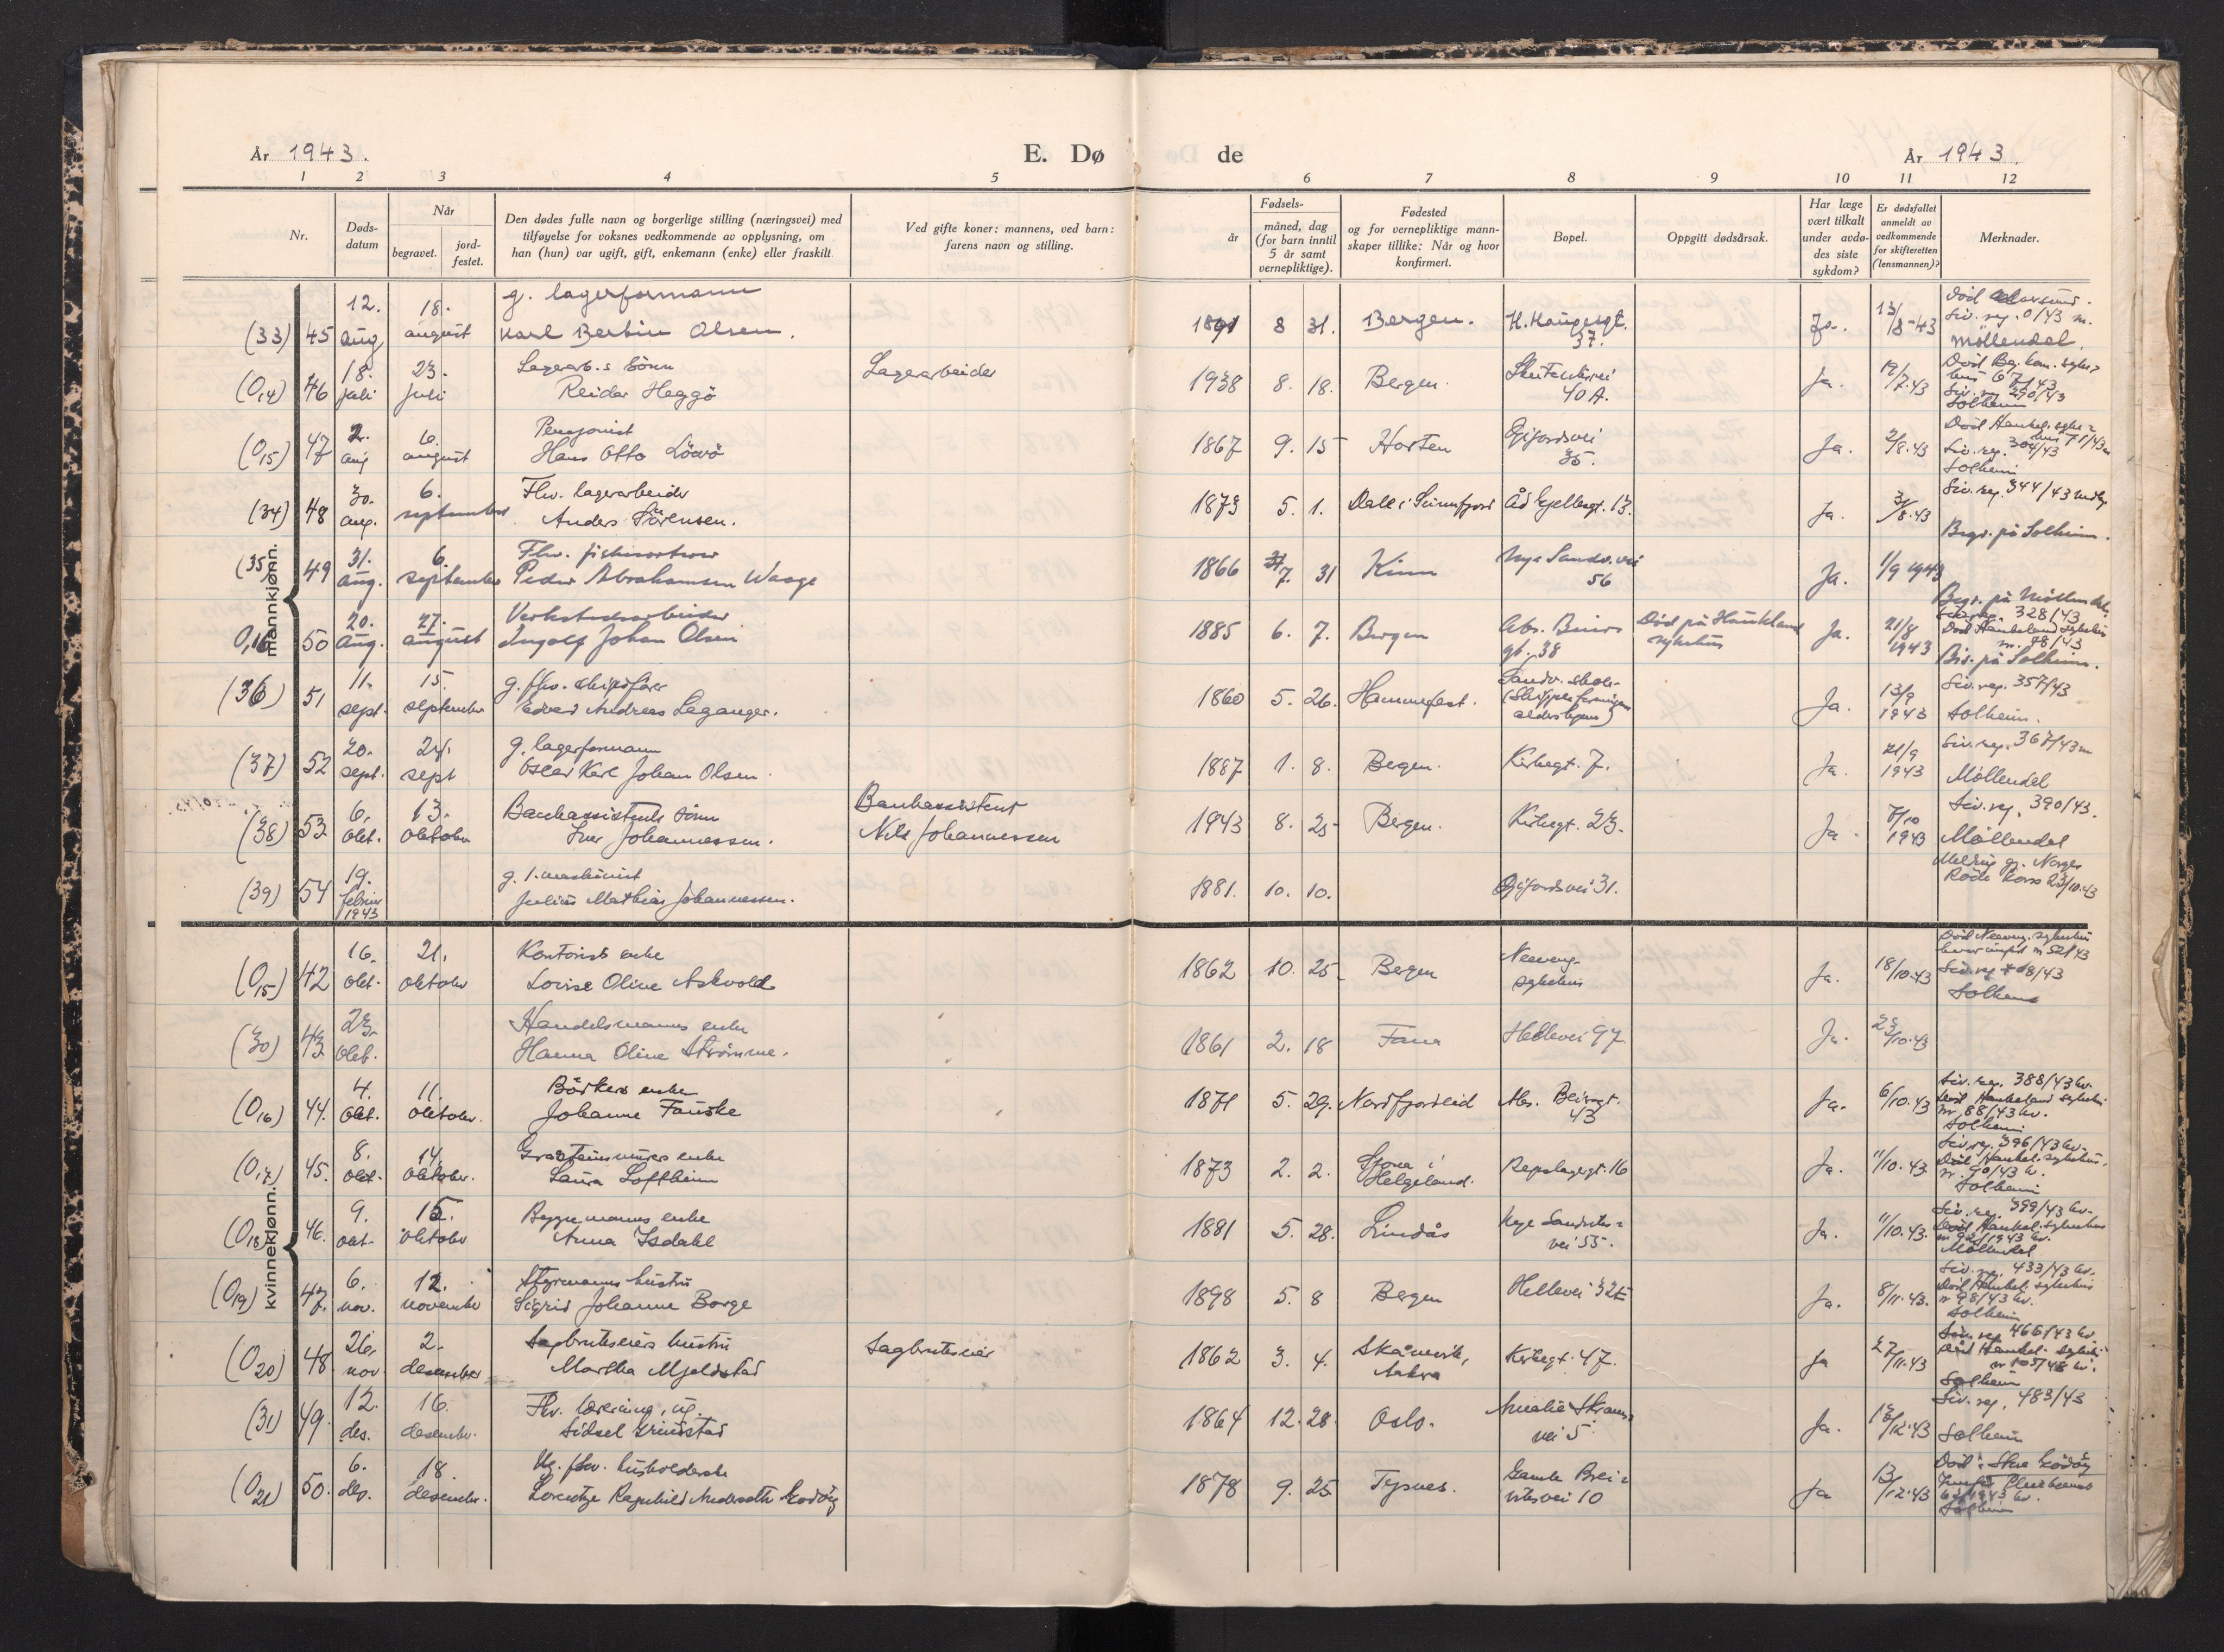 År 1943.
E. Dø de
År 1943.
1 2 3 4 5 6 7 8 9 10 11 12
Nr.
Døds-
datum
Når
begravet.
jord-
festet.
Den dødes fulle navn og borgerlige stilling (næringsvei) med
tilføyelse for voksnes vedkommende av opplysning, om
han (hun) var ugift, gift, enkemann (enke) eller fraskilt.
Ved gifte koner: mannens, ved barn:
farens navn og stilling.
Fødsels-
år
måned, dag
(for barn inntil
5 år samt
vernepliktige).
Fødested
og for vernepliktige mann-
skaper tillike: Når og hvor
konfirmert.
Bopel.
Oppgitt dødsårsak.
Har læge
vært tilkalt
under avdø-
des siste
sykdom?
Er dødsfallet
anmeldt av
vedkommende
for skifteretten
(lensmannen)?
Merknader.
mannkjønn.
12. 18. g. lagerformann
(33) 45 aug august Karl Bertin Olsen. 1891 8 31. Bergen. 37. Ja. 13/8-43
Møllendal.
18. 23. Lagerarb.s sønn Lagerarbeider
(0,14) 46 juli juli Reidar Heggö 1938 8. 18. Bergen. 40 A. Ja. 19/7.43
Solheim
2. 6. Pensjonist
(0,15) 47 aug august Hans Otto 1867 9. 15 Horten 35. Ja. 2/8.43
Siv. reg. 304/43
Solheim
30. 6. Fhv. lagerarbeider
(34) 48 aug. september Anders Sörensen. 1873 5. 1. Dale i Sunnfjord 13. Ja. 31/8.43
Siv. reg. 344/43
Begr. på Solheim.
31. 6. Fhv.
(35) 49 aug. september Peder Abrahamsen Waage 1866 7. 31 Kinn Nye Sandv. vei 56 Ja. 1/9 1943
Begr. på Møllendal.
20. 27. Verkstedsarbeider
0,16 50 aug. august Ingolf Johan Olsen 1885 6. 7. Bergen gt. 38 Død på Haukeland
sykehus Ja. 21/8 1943
328/43
Død Haukeland sykehus
nr. 78/43
Bis. på Solheim.
11. 15. g. fhv. skipsfører
(36) 51 sept. september Edvard Andreas Leganger. 1860 5. 26. Hammerfest. Ja. 13/9 1943
Siv. reg. 357/43
Solheim.
20. 24. g. lagerformann
(37) 52 sept. sept Oscar Karl Johan Olsen. 1887 1. 8. Bergen. Kirkegt. 7. Ja. 21/9 1943
Siv. reg. 367/43 m
Møllendal
6. 13. Bankassistents sønn Bankassistent
(38) 53 okt. oktober Iver Johannessen. Nils Johannessen 1943 8. 25 Bergen. Kirkegt. 23. Ja. 7/10 1943
Siv. reg. 390/43.
Møllendal
19. g. 1. maskinist
(39) 54 februar 1943 Julius Mathias Johannessen. 1881. 10. 10. 31.
Melding gj. Norges
Røde Kors 23/10.43
kvinnekjønn.
16. 21. Kontorists enke
(0,15) 42 okt. oktober Lovise Oline Askvold 1862 10. 25 Bergen
sykehus Ja. 18/10.43
Solheim
23. Handelsmanns enke
(30) 43 okt. Hanna Oline Strömme. 1861 2. 18 Fana Hellevei 97 Ja. 23/10.43
4. 11. Bödkers enke
(0,16) 44. okt. oktober. Johanne Fauske 1871 5. 29. Nordfjordeid 43 Ja. 6/10.43
Siv. reg. 388/43 kv.
Død Haukeland sykehus
nr. 88/43 kv.
Solheim
8. 14. Gråsteinmurers enke
(0,17) 45. okt. oktober. Laura Loftheim 1873 2. 2. Stona i
Helgeland. Repslagergt. 16 Ja. 11/10.43
Siv. reg. 396/43 kv.
Død Haukel. sykehus,
nr. 90/43 k.
Solheim
9. 15. enke
(0,18) 46. okt. oktober Anna Isdahl 1881 5. 28. Lindås Nye Sandviks-
vei 55. Ja. 11/10.43.
Siv. reg. 399/43 kv.
Møllendal
6. 12. Styrmanns hustru
(0,19) 47. nov. november Sigrid Johanne Borge 1898 5. 8 Bergen Hellevei Ja. 8/11.43.
Siv. reg. 433/43 kv.
Død Haukel. sykehus
nr 98/43 kv.
Solheim
26. 2. Sagbrukseiers hustru Sagbrukseier
(0,20) 48. nov. desember Martha Mjeldstad 1862 3. 4. Skånevik,
Aakra Kirkegt. 47. Ja 27/11.43
Siv. reg. 466/43 kv.
Solheim
12. 16. Fhv. lærerinne, ug.
(31) 49. des. desember. Sidsel Grimstad 1864 12. 28. Oslo. Amalie Skrams-
vei 5. Ja. 13/12.43
Siv. reg. 483/43
Solheim
6. 18. Ug. fhv. husholderske
(0,21) 50. des. desember. Ragnhild 1878 9. 25 Tysnes. Gamle
10 Ja 13/12.43
Solheim